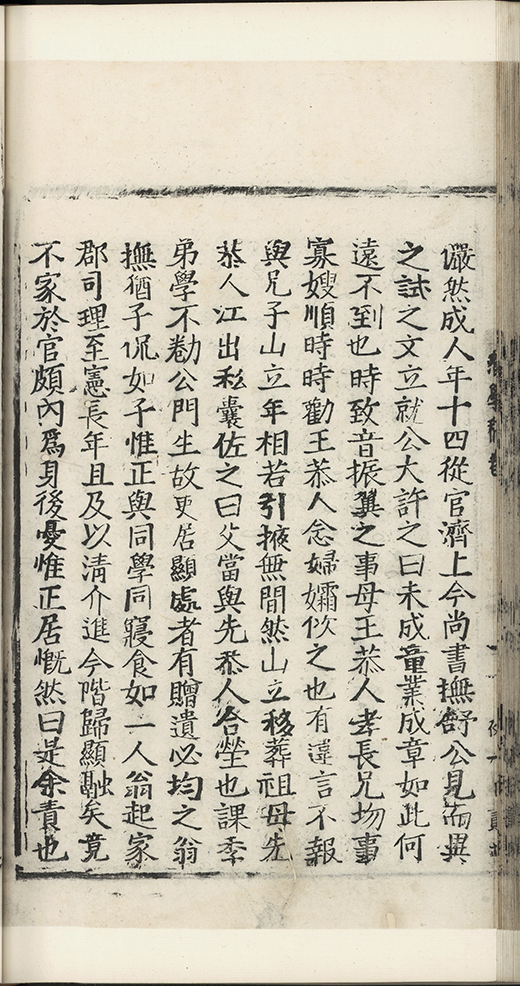 儼然成人年十四從官濟上今尚書撫舒公見而異
之試之文立就公大許之曰未成童業成章如此何
遠不到也時致音振翼之事母王恭人孝長兄歿事
寡嫂順時時勸王恭人念婦孀佽之也有違言不報
與兄子山立年相若引掖無間然山立移葬祖母先
恭人江出私囊佐之曰父當與先恭人合塋也課季
弟學不勌公門生故吏居顯處者有贈遺必均之翁
撫猶子侃如子惟正與同學同寢食如一人翁起家
郡司理至憲長年且及以清介進今階歸顯融矣竟
不家於官頗內爲身後憂惟正居慨然曰是余責也